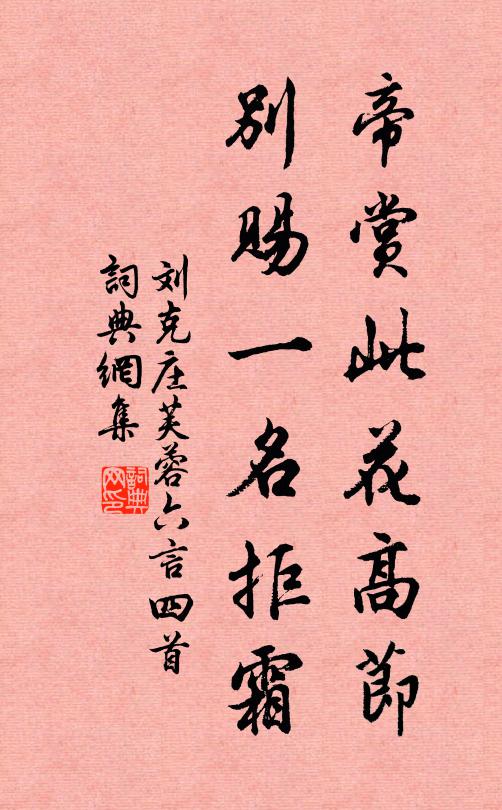 帝賞此花高節
別賜一名拒霜
刘克庄芙蓉六言四首
詞典網集
詞典
网印